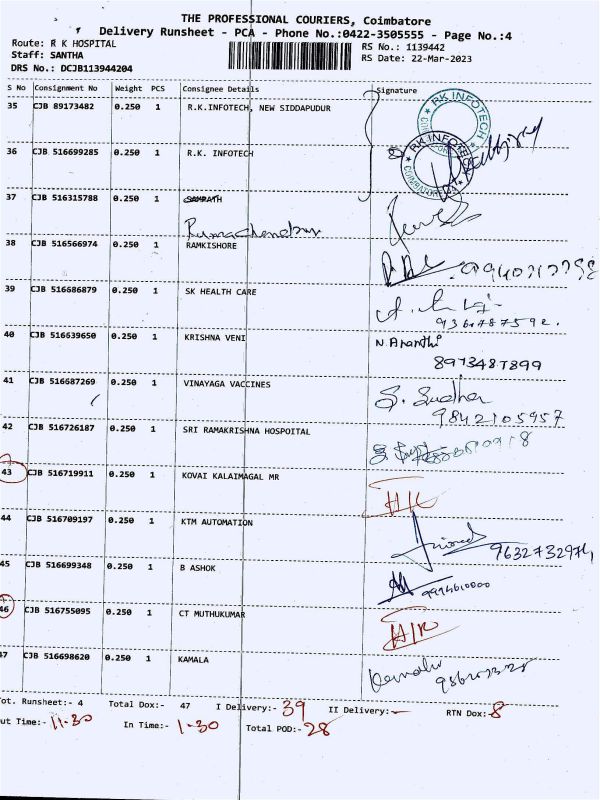 THE PROFESSIONAL COURIERS, Coimbatore
Delivery Runsheet - PCA - Phone No.:0422-3505555 - Page No.:4
Route: R K HOSPITAL
Staff: SANTHA
DRS No.: DCJB113944204
RS No.: 1139442
RS Date: 22-Mar-2023
S No Consignment No Weight PCS Consignee Details Signature
35 CJB 89173482 0.250 1 R.K.INFOTECH, NEW SIDDAPUDUR
RK INFOTECH
36 CJB 516699285 0.250 1 R.K. INFOTECH
RK INFOTECH
COIMBATORE
37 CJB 516315788 0.250 1 SAMRATH
Ramachandran
38 CJB 516566974 0.250 1 RAMKISHORE
39 CJB 516686879 0.250 1 SK HEALTH CARE
40 CJB 516639650 0.250 1 KRISHNA VENI N. Ananthi
8973487899
41 CJB 516687269 0.250 1 VINAYAGA VACCINES S. Sudha
9842105957
42 CJB 516726187 0.250 1 SRI RAMAKRISHNA HOSPOITAL
43 CJB 516719911 0.250 1 KOVAI KALAIMAGAL MR
44 CJB 516709197 0.250 1 KTM AUTOMATION
9632732974
45 CJB 516699348 0.250 1 B ASHOK
46 CJB 516755095 0.250 1 CT MUTHUKUMAR
47 CJB 516698620 0.250 1 KAMALA Kamala
Tot. Runsheet:- 4 Total Dox:- 47 I Delivery:- 39 II Delivery:- — RTN Dox:- 8
ut Time:- 11-30 In Time:- 1-30 Total POD:- 28